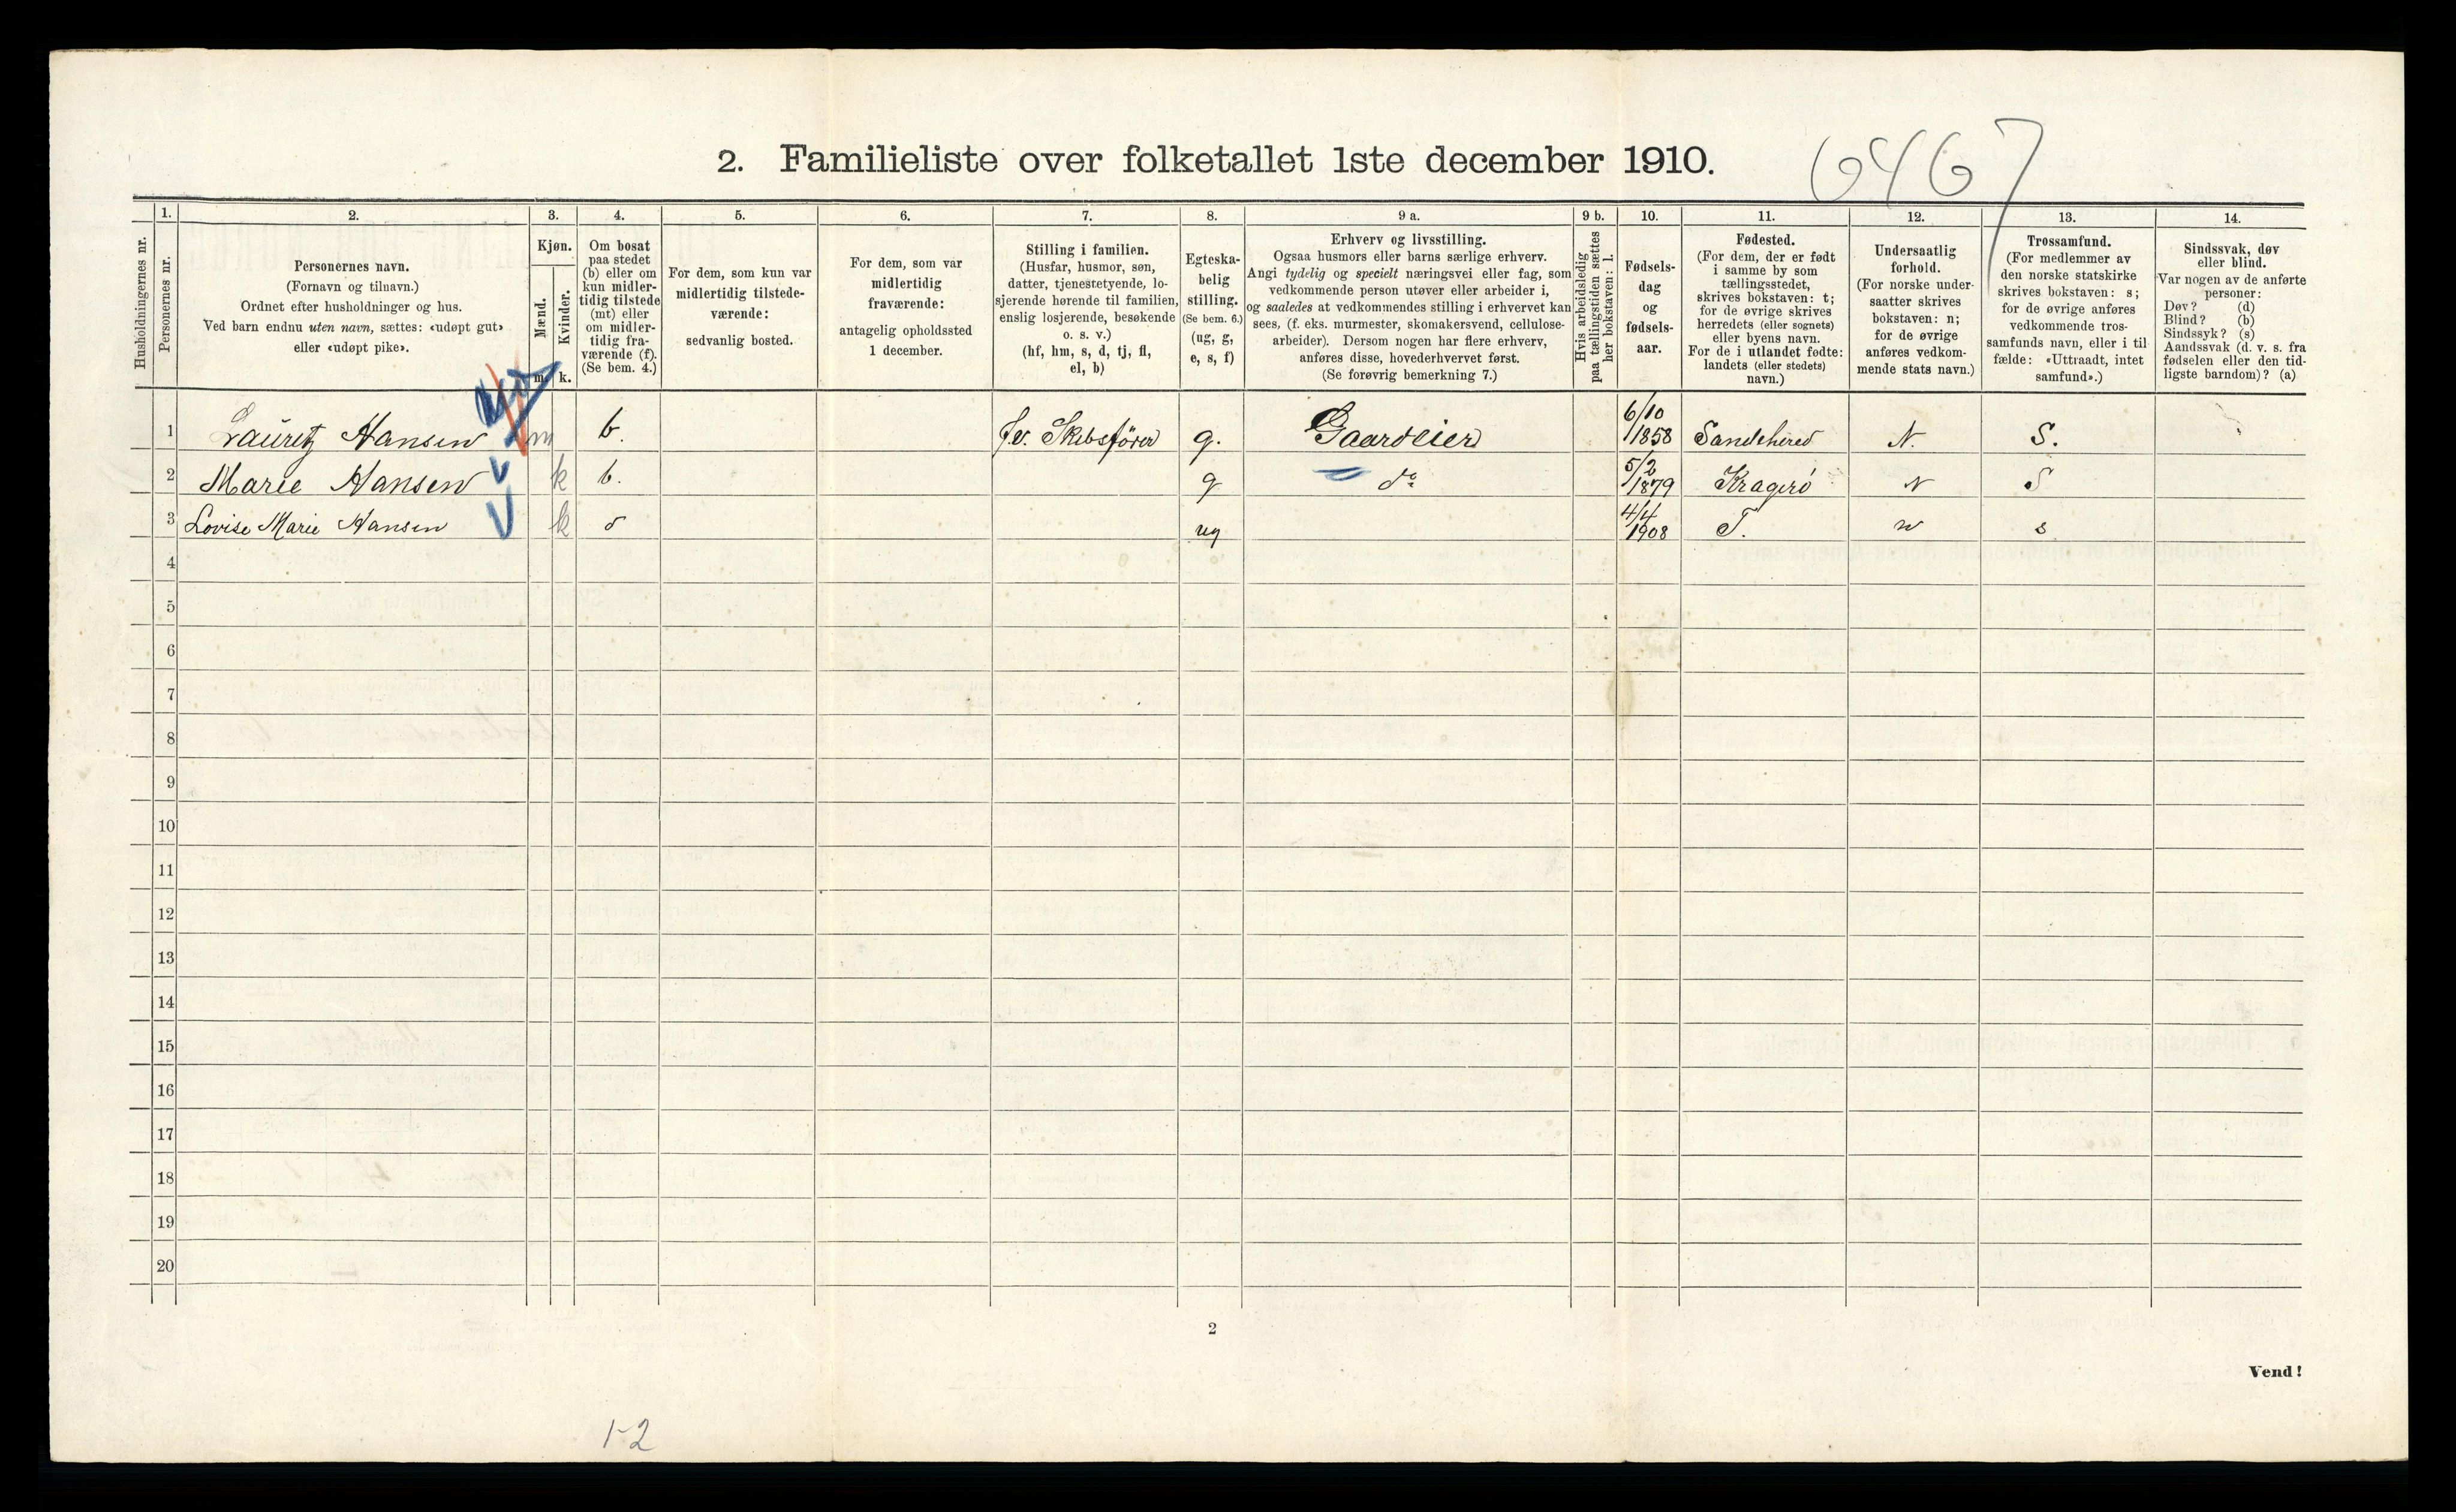 6467
2. Familieliste over folketallet 1ste december 1910.
Husholdningernes nr.
1.
Personernes nr.
2.
Personernes navn.
(Fornavn og tilnavn.)
Ordnet efter husholdninger og hus.
Ved barn endnu uten navn, sættes: «udøpt gut»
eller «udøpt pike».
3.
Kjøn.
Mænd.
Kvinder.
m. k.
4.
Om bosat
paa stedet
(b) eller om
kun midler-
tidig tilstede
(mt) eller
om midler-
tidig fra-
værende (f).
(Se bem. 4.)
5.
For dem, som kun var
midlertidig tilstede-
værende:
sedvanlig bosted.
6.
For dem, som var
midlertidig
fraværende:
antagelig opholdssted
1 december.
7.
Stilling i familien.
(Husfar, husmor, søn,
datter, tjenestetyende, lo-
sjerende hørende til familien,
enslig losjerende, besøkende
o. s. v.)
(hf, hm, s, d, tj, fl,
el, b)
8.
Egteska-
belig
stilling.
(Se bem. 6.)
(ug, g,
e, s, f)
9 a.
Erhverv og livsstilling.
Ogsaa husmors eller barns særlige erhverv.
Angi tydelig og specielt næringsvei eller fag, som
vedkommende person utøver eller arbeider i,
og saaledes at vedkommendes stilling i erhvervet kan
sees, (f. eks. murmester, skomakersvend, cellulose-
arbeider). Dersom nogen har flere erhverv,
anføres disse, hovederhvervet først.
(Se forøvrig bemerkning 7.)
9 b.
Hvis arbeidsledig
paa tællingstiden sættes
her bokstaven: l.
10.
Fødsels-
dag
og
fødsels-
aar.
11.
Fødested.
(For dem, der er født
i samme by som
tællingsstedet,
skrives bokstaven: t;
for de øvrige skrives
herredets (eller sognets)
eller byens navn.
For de i utlandet fødte:
landets (eller stedets)
navn.)
12.
Undersaatlig
forhold.
(For norske under-
saatter skrives
bokstaven: n;
for de øvrige
anføres vedkom-
mende stats navn.)
13.
Trossamfund.
(For medlemmer av
den norske statskirke
skrives bokstaven: s;
for de øvrige anføres
vedkommende tros-
samfunds navn, eller i til-
fælde: «Uttraadt, intet
samfund».)
14.
Sindssvak, døv
eller blind.
Var nogen av de anførte
personer:
Døv? (d)
Blind? (b)
Sindssyk? (s)
Aandssvak (d. v. s. fra
fødselen eller den tid-
ligste barndom)? (a)
1 Lauritz Hansen m b. fv. Skibsfører g. Gaardeier 6/10 1858 Sandehered N. S.
2 Marie Hansen k b. g do 5/2 1879 Kragerø N S
3 Lovise Marie Hansen k d ug 4/4 1908 T. n s
4
5
6
7
8
9
10
11
12
13
14
15
16
17
18
19
20
2
Vend!
1-2